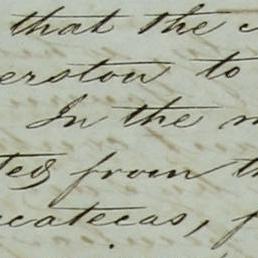 that the
erstow to
In the
ted from th
acatecas, f